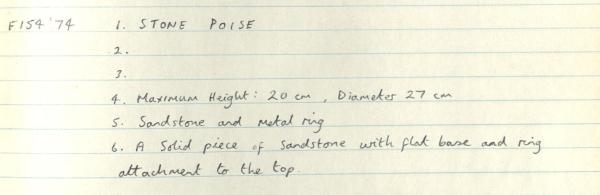 F154 '74 1. STONE POISE
2.
3.
4. Maximum Height: 20 cm, Diameter 27 cm
5. Sandstone and metal ring
6. A Solid piece of sandstone with flat base and ring
attachment to the top.